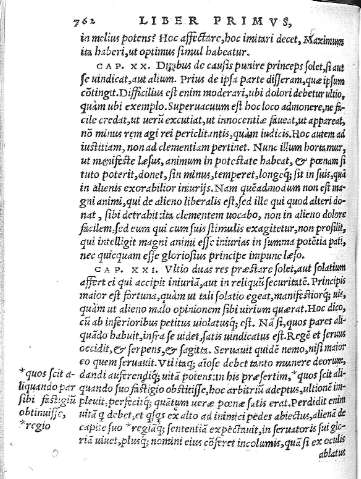 762 LIBER PRIMVS,
ia melius potens? Hoc affectare, hoc imitari decet, Maximum
ita haberi, ut optimus simul habeatur.
CAP. XX. Duabus de causis punire princeps solet, si aut
se uindicat, aut alium. Prius de ipsa parte disseram, quæ ipsum
cõtingit. Difficilius est enim moderari, ubi dolori debetur ultio,
quàm ubi exemplo. Superuacuum est hoc loco admonere, ne fa-
cile credat, ut uerũ excutiat, ut innocentiæ faueat, ut appareat,
nõ minus rem agi rei periclitantis, quàm iudicis. Hoc autem ad
iustitiam, non ad clementiam pertinet. Nunc illum hortamur,
ut manifeste læsus, animum in potestate habeat, & pœnam si
tuto poterit, donet, sin minus, temperet, longeq; sit in suis, quã
in alienis exorabilior iniurijs. Nam quẽadmodum non est ma-
gni animi, qui de alieno liberalis est, sed ille qui quod alteri do-
nat, sibi detrahit: ita clementem uocabo, non in alieno dolore
facilem, sed eum qui cum suis stimulis exagitetur, non prosilit,
qui intelligit magni animi esse iniurias in summa potẽtia pati,
nec quicquam esse gloriosius principe impune læso.
CAP. XXI. Vltio duas res præstare solet, aut solatium
affert ei qui accipit iniuriã, aut in reliquũ securitatẽ. Principis
maior est fortuna, quàm ut tali solatio egeat, manifestiorq; uis,
quàm ut alieno malo opinionem sibi uirium quærat. Hoc dico,
cũ ab inferioribus petitus uiolatusq; est. Nã si, quos pares ali-
quãdo habuit, infra se uidet, satis uindicatus est. Regẽ et seruus
occidit, & serpens, & sagitta. Seruauit quidẽ nemo, nisi maior
eo quem seruauit. Vti itaq; aïose debet tanto munere deorum,
dandi auferendiq; uitã potens: in his præsertim, *quos scit ali-
quando suo fastigio obstitisse, hoc arbitriũ adeptus, ultionẽ im-
pleuit, perfecitq; quantum ueræ pœnæ satis erat. Perdidit enim
uitã q debet, et qsqs ex alto ad inimici pedes abiectus, alienã de
capite suo *regiaq; sententiã expectauit, in seruatoris sui glo-
riã uiuet, plusq; nomini eius cõferet incolumis, quã si ex oculis
ablatus
*quos scit a-
liquando par
sibi fastigiũ
obtinuisse,
*regio